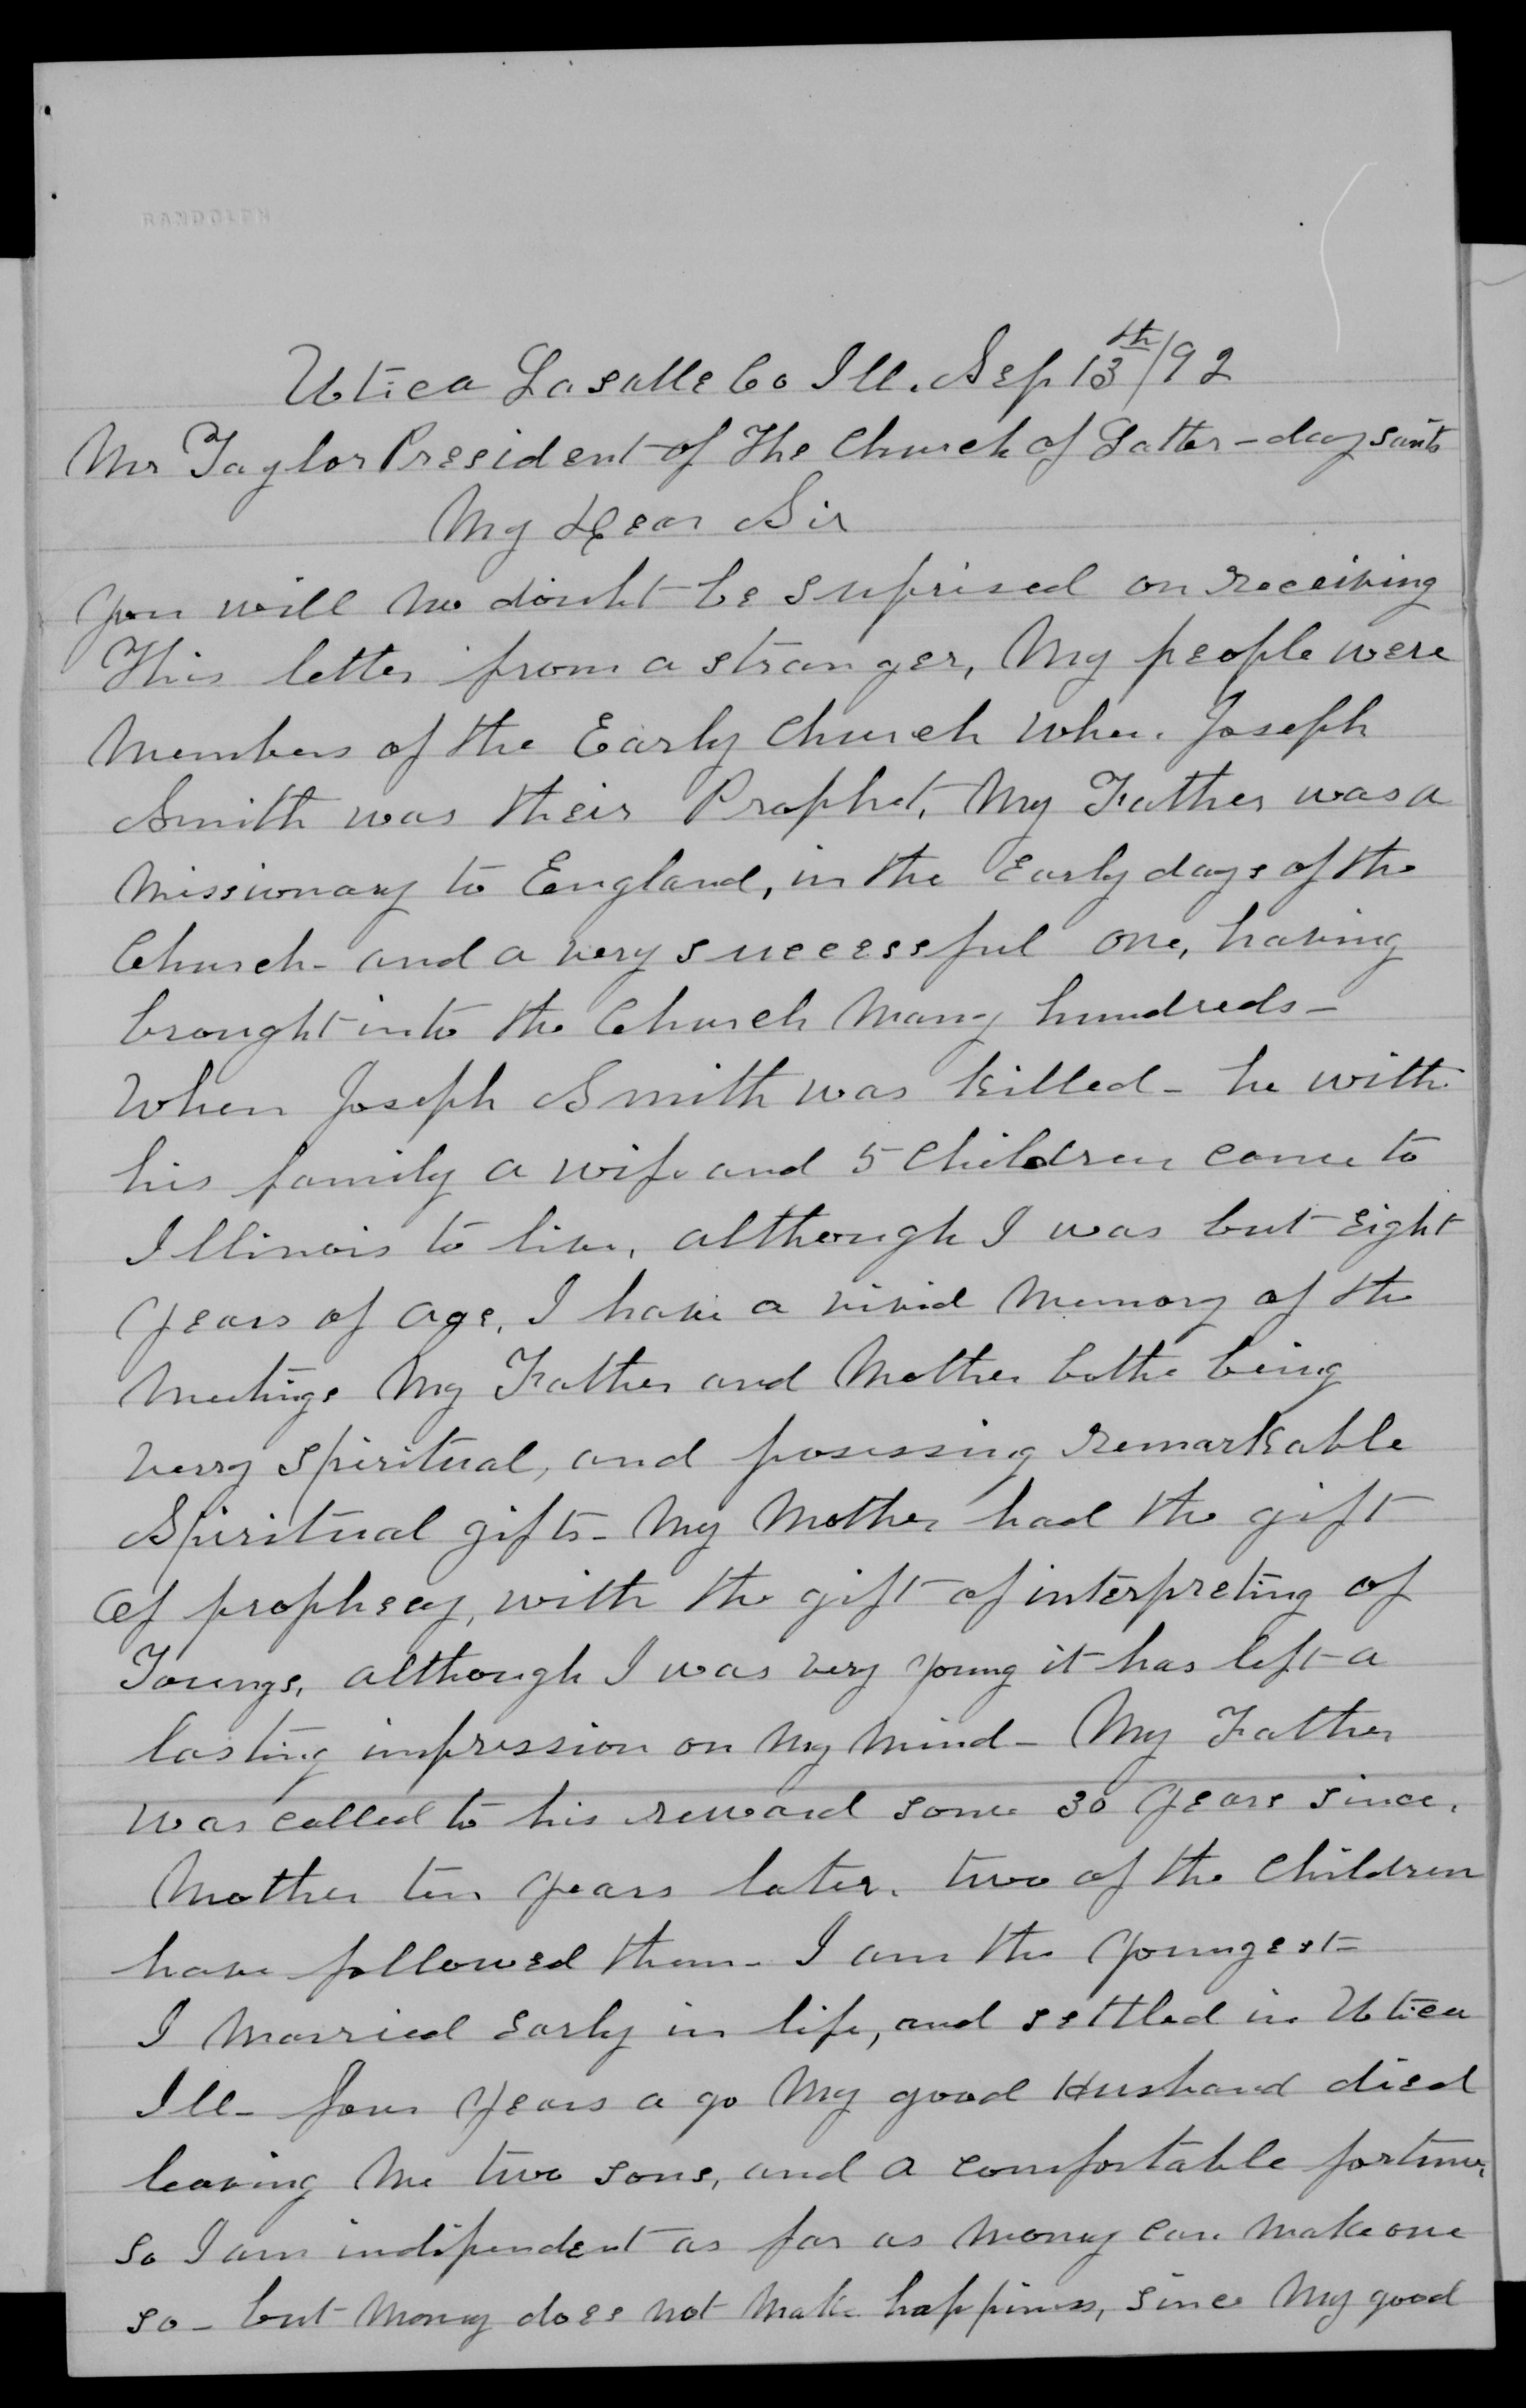 RANDOLPH
Utica Lasalle Co Ill. Sep 13th/92
Mr Taylor President of The Church of Latter-day saints
My Dear Sir
you will no doubt be suprised on receiving
This letter from a stranger, My people were
Members of the Early Church when Joseph
Smith was their Prophet, My Father was a
Missionary to England, in the Early days of the
Church- and a very successful one, having
brought into the Church Many hundreds-
When Joseph Smith was killed- he with
his family a wife and 5 Children came to
Illinois to live, although I was but Eight
years of age, I have a vivid Memory of the
Meetings My Father and Mother bothe being
verry spiritual, and posessing remarkable
Spiritual gifts- My Mother had the gift
of prophecy, with the gift of interpreting of
Toungs, although I was very young it has left a
lasting impression on My Mind- My Father
was called to his reward some 30 years since.
Mother ten years later. two of the Children
have followed them- I am the youngest-
I Married Early in life, and settled in Utica
Ill- four years a go My good Husband died
leaving Me two sons, and a comfortable fortune,
so I am indipendent as far as Money can Make one
so- but Money does not Make happiness, since My good